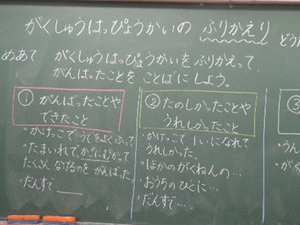 がくしゅうはっぴょうかいの ふりかえり どう
めあて がくしゅうはっぴょうかいをふりかえって、
がんばったことを ことばにしよう。
① がんばったことや
できたこと
・かけっこでうでをよくふって
・たまいれでかごにむかって
たくさんなげるのをがんばった
・だんすで
② たのしかったことや
うれしかったこと
・かけっこで1いになれて
うれしかった。
・ほかのがくねんの…
・おうちのひとに…
・だんすで…
③
・うん
・が